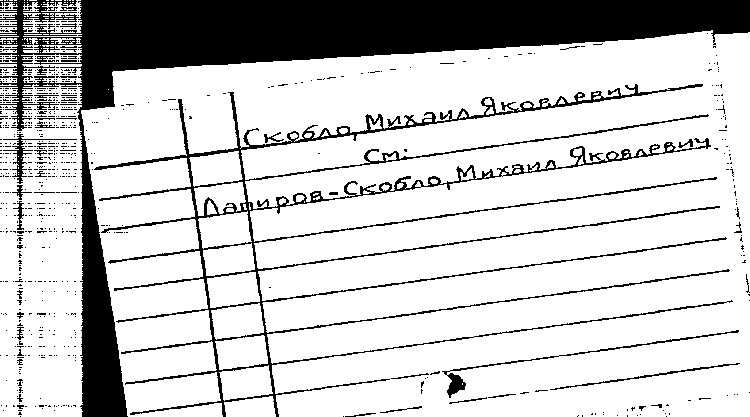 Скобло, Михаил Яковлевич
См:
Лапиров-Скобло, Михаил Яковлевич